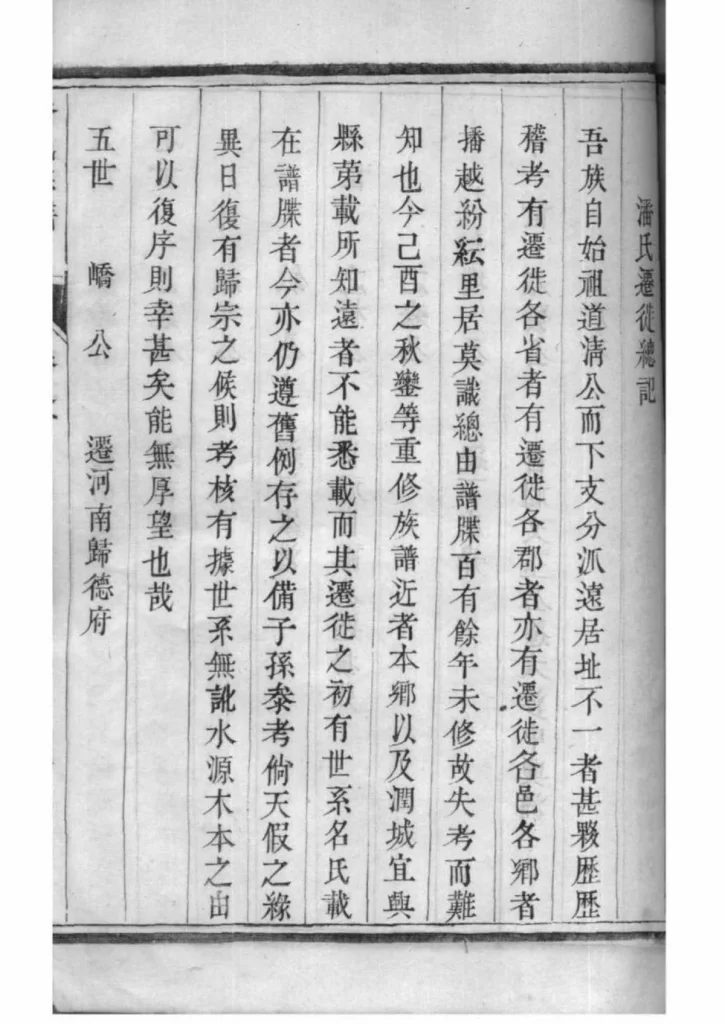 潘氏遷徙總記
吾族自始祖道清公而下支分泒遠居址不一者甚夥歷歷
稽考有遷徙各省者有遷徙各郡者亦有遷徙各邑各鄉者
播越紛紜里居莫識總由譜牒百有餘年未修故失考而難
知也今己酉之秋鑾等重修族譜近者本鄉以及潤城宜興
縣苐載所知遠者不能悉載而其遷徙之初有世系名氏載
在譜牒者今亦仍遵舊例存之以備子孫叅考倘天假之緣
異日復有歸宗之候則考核有據世系無訛水源木本之由
可以復序則幸甚矣能無厚望也哉
五世 嶠公 遷河南歸德府